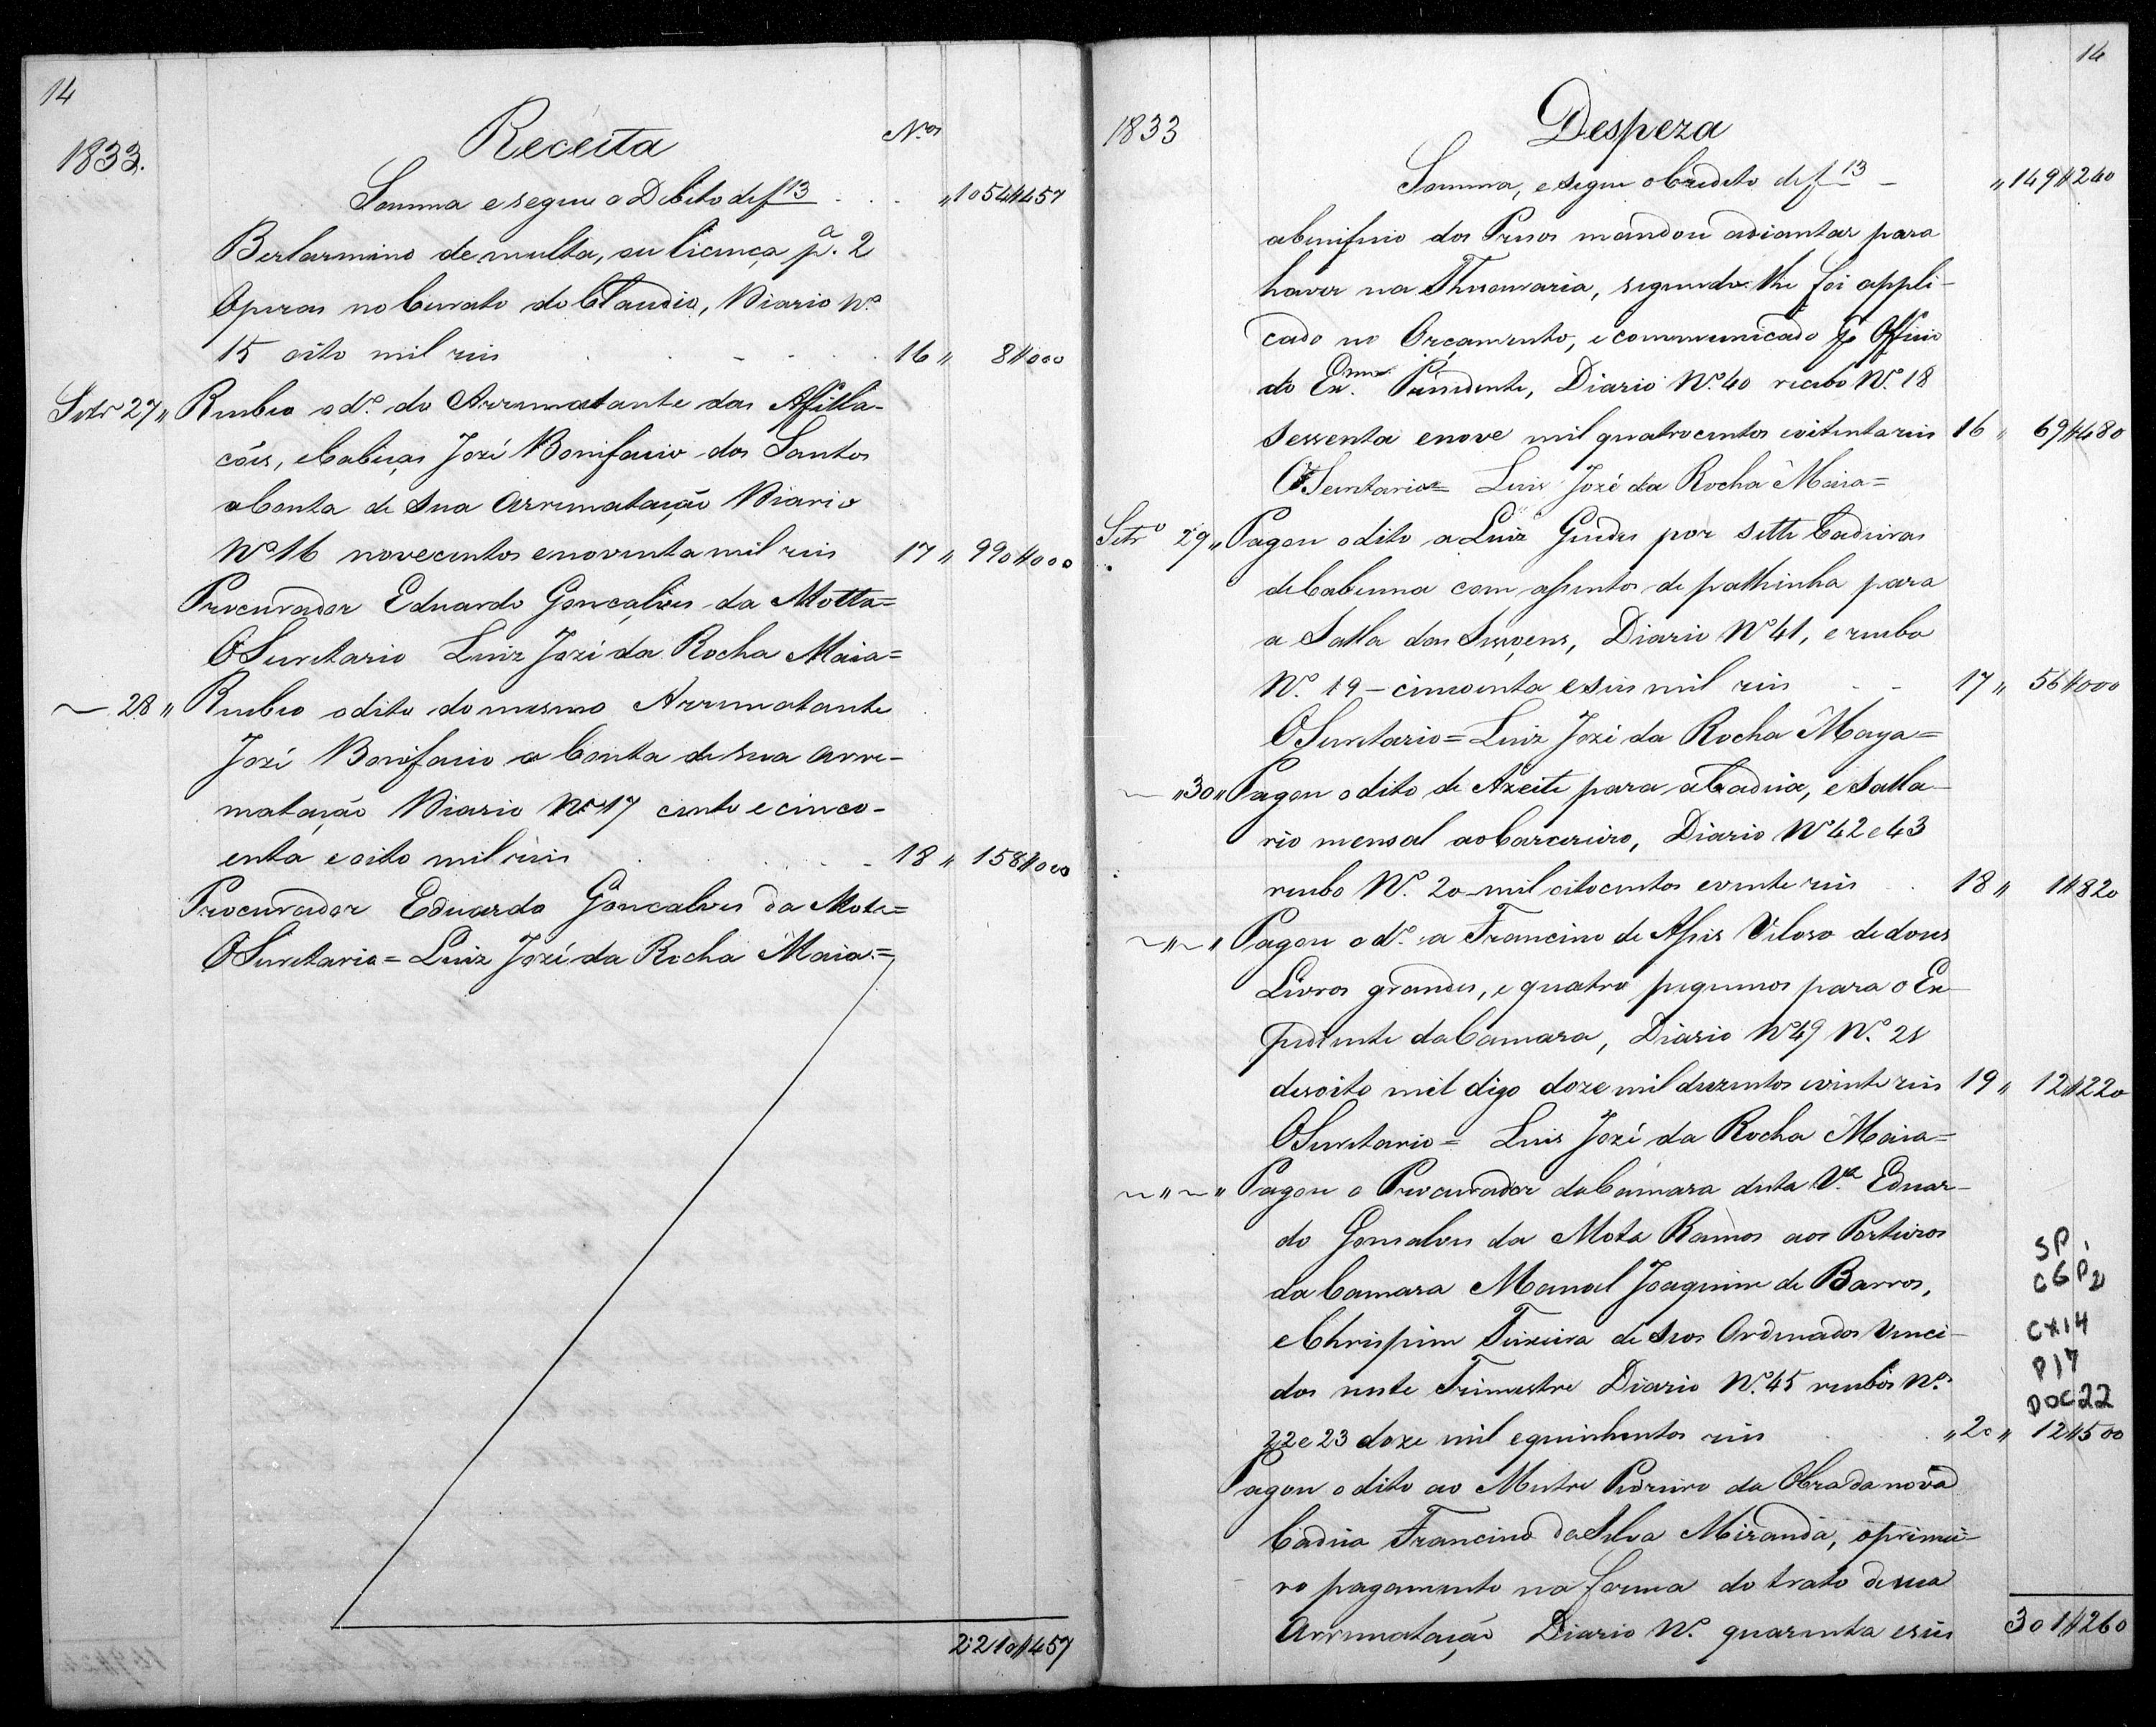 14
1833.
Receita
N.os
Somma e segue o Debito de f 13 . . . " 1054#457
Berlarmino de multa, ou licença p.a 2
Operas no Curato do Claudio, Diario No
15 oito mil reis . . . 16 " 8#000
Setro 27 " Recebeo o do. do Arrematante das Afilla-
cões, e Cabeças Jozé Bonifacio dos Santos
a Conta de sua Arrematação Diario
No 16 novecentos e noventa mil reis 17 " 990#000
Procurador Eduardo Gonçalves da Motta=
O Secretario Luiz Jozé da Rocha Maia=
~ 28 " Recebeo o dito do mesmo Arrematante
Jozé Bonifacio a Conta de sua arre-
matação Diario No 17 cento e cinco-
enta e oito mil reis . . . 18 " 158#000
Procurador Eduardo Goncalves da Mota=
O Secretario= Luiz Jozé da Rocha Maia.=
2210#457
14
1833
Despeza
Somma, e segue o Credito de f 13 - " 149#240
a beneficio dos Prezos mandou adiantar para
haver na Thesouraria, segundo lhe foi appli-
cado no Orçamento, e communicado p Officio
do Exmo. Prezidente, Diario No. 40 recibo No. 18
sessenta e nove mil quatrocentos e oitenta reis 16 " 69#480
O Secretario= Luiz Jozé da Rocha Maia=
Setro 29 " Pagou o dito a Luiz Guedes por sette Cadeiras
de Cabeuna com assentos de palhinha para
a Salla das Sessoens, Diario No 41, e recibo
No. 19 - cincoenta e seis mil reis - - 17 " 56#000
O Secretario= Luiz Jozé da Rocha Maya=
~ " 30 " Pagou o dito de Azeite para a Cadeia, e Salla-
rio mensal ao Carcereiro, Diario No 42 e 43
recibo No. 20 - mil oitocentos e vinte reis . 18 " 1#820
~ " ~ " Pagou o do. a Francisco de Assis Veloso de dous
Livros grandes, e quatro pequenos para o Ex-
pediente da Camara, Diario No 49 No. 21
desoito mil digo doze mil duzentos e vinte reis 19 " 12#220
O Secretario= Luis Jozé da Rocha Maia=
~ " ~ " Pagou o Procurador da Camara desta Va. Eduar-
do Gonsalves da Mota Ramos aos Porteiros
da Camara Manoel Joaquim de Barros,
e Chrispim Teixeira de seos Ordenados venci-
dos neste Trimestre Diario No. 45 recibos Nos
22 e 23 doze mil e quinhentos reis . . " 20 " 12#500
Pagou o dito ao Mestre Pedreiro da Obra da nova
Cadeia Francisco da Silva Miranda, o primei-
ro pagamento na forma do trato de sua
Arrematação Diario No. quarenta e seis
301#260
SP,
CGP2
CX14
P17
DOC22